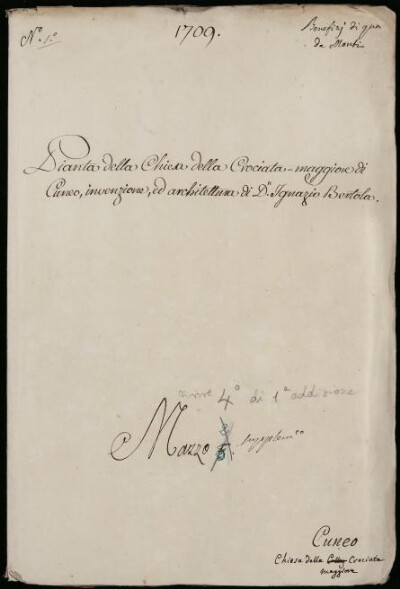 1709.
N.º 1.º
Benefizj di qua
da Monti
Pianta della Chiesa della Crociata-maggiore di
Cuneo, invenzione, ed architettura di D.r Ignazio Bertola.
4º di 1ª addizione
Mazzo 5. supplem.to
Cuneo
Chiesa della Crociata
maggiore